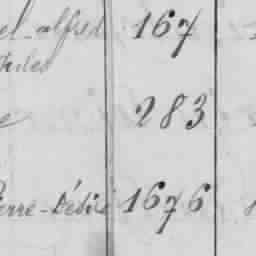 el-alfred 167
283
Pierre-Désiré 1676